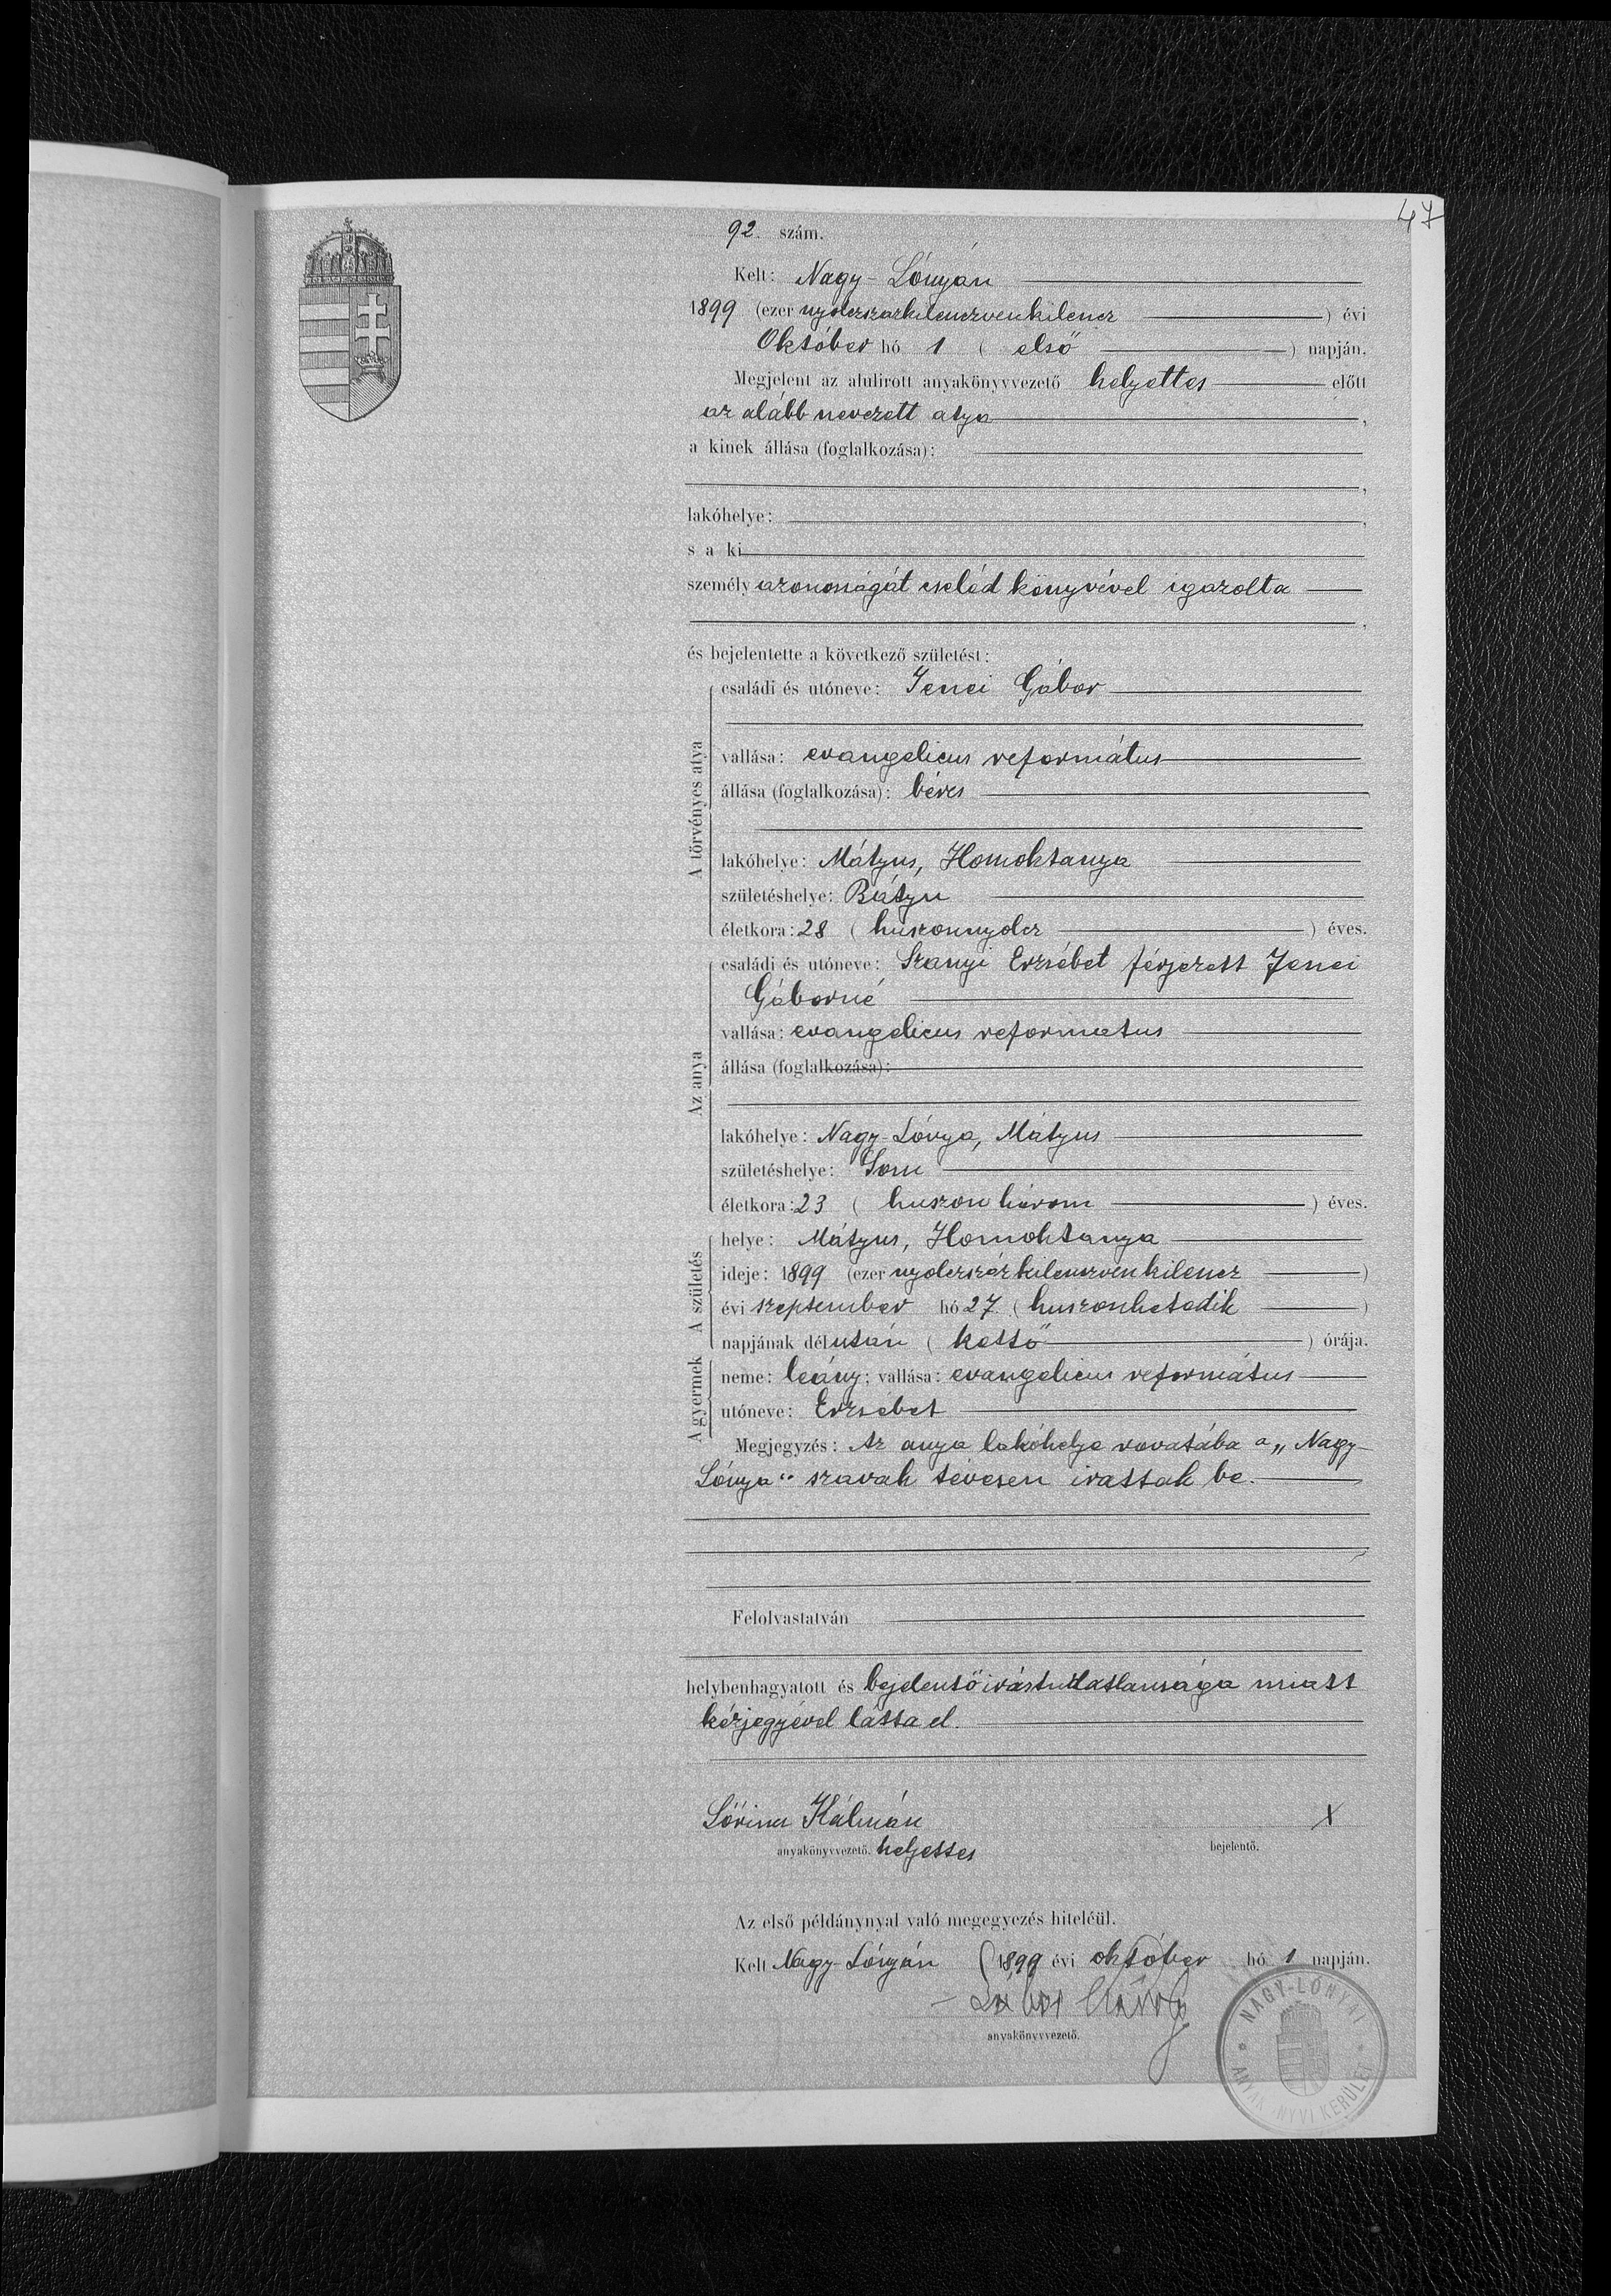 47
92 szám.
Kelt: Nagy-Lónyán
1899 (ezer nyolczszázkilenczvenkilencz) évi
Október hó 1 (első) napján.
Megjelent az alulirott anyakönyvvezető helyettes előtt
az alább nevezett atya,
a kinek állása (foglalkozása):
lakóhelye:
s a ki
személyazonosságát cseléd könyvével igazolta
és bejelentette a következő születést:
A törvényes atya
családi és utóneve: Jenei Gábor
vallása: evangelicus református
állása (foglalkozása): béres
lakóhelye: Mátyus, Homoktanya
születéshelye: Bátyu
életkora: 28 (huszonnyolcz) éves.
Az anya
családi és utóneve: Szanyi Erzsébet férjezett Jenei
Gáborné
vallása: evangelicus reformatus
állása (foglalkozása):
lakóhelye: Nagy-Lónya, Mátyus
születéshelye: Som
életkora: 23 (huszonhárom) éves.
A születés
helye: Mátyus, Homoktanya
ideje: 1899 (ezer nyolczszázkilenczvenkilencz)
évi szeptember hó 27 (huszonhetedik)
napjának délután (kettő) órája.
A gyermek
neme: leány; vallása: evangelicus református
utóneve: Erzsébet
Megjegyzés: Az anya lakóhelye rovatába a „Nagy-
Lónya" szavak tévesen irattak be.
Felolvastatván
helybenhagyatott és bejelentő irástudatlansága miatt
kézjegyével látta el.
Lőrincz Kálmán X
anyakönyvvezető. helyettes bejelentő.
Az első példánynyal való megegyezés hiteléül.
Kelt Nagy-Lónyán 1899 évi október hó 1 napján.
anyakönyvvezető.
NAGY-LÓNYAI
ANYAKÖNYVI KERÜLET